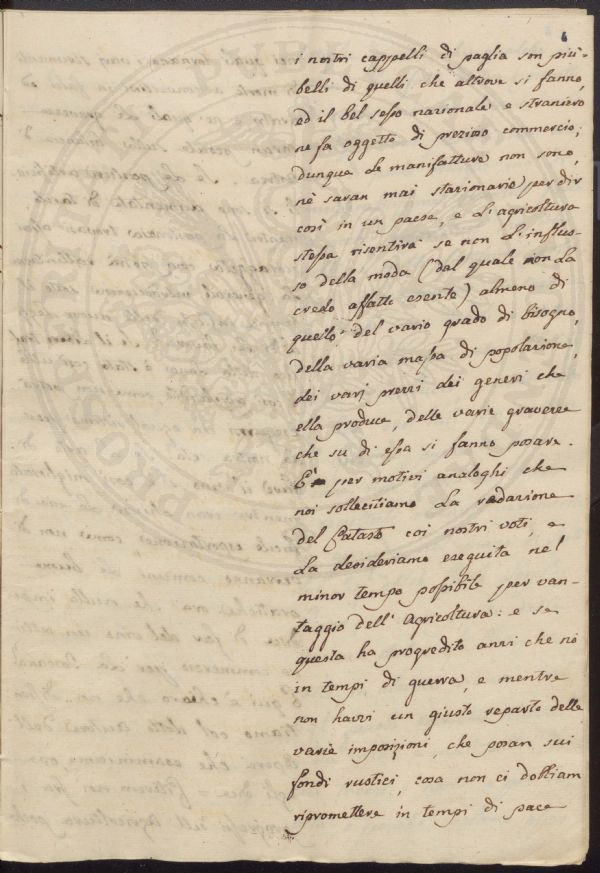 i nostri cappelli di paglia son più
belli di quelli che altrove si fanno,
ed il bel sesso nazionale e straniero
ne fa oggetto di prezioso commercio;
dunque le manifatture non sono,
nè saran mai stazionarie per dir
così in un paese, e l'agricoltura
stessa risentirà se non l'influs-
so della moda (dal quale non la
credo affatto esente) almeno di
quello del vario grado di bisogno,
della varia massa di popolazione,
dei varj prezzi dei generi che
ella produce, delle varie gravezze
che su di essa si fanno posare.
E' per motivi analoghi che
noi sollecitiamo la redazione
del Catasto coi nostri voti, e
la desideriamo eseguita nel
minor tempo possibile per van-
taggio dell'Agricoltura: e se
questa ha progredito anzi che nò
in tempi di guerra, e mentre
non havvi un giusto reparto delle
varie imposizioni, che posan sui
fondi rustici, cosa non ci dobbiam
ripromettere in tempi di pace